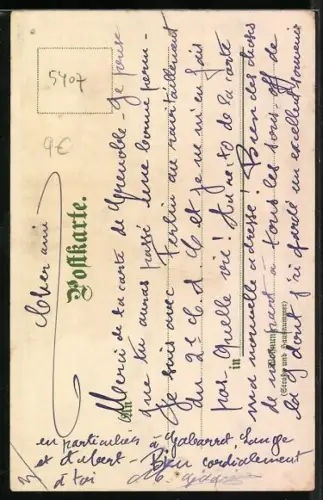 5407
9€
Postkarte.
An
in
Wohnung
(Straße und Hausnummer)
Cher ami
Merci de ta carte de Grenoble - Je pense
que tu auras passé une bonne perm -
Je suis avec Fertin au ravitaillement
du 2e C. A. C et je ne m'en fais
pas. Quelle vie! Au dos de la carte
ma nouvelle adresse! Bien des choses
de ma part à tous les sous-off de
la dont j'ai gardé un excellent souvenir
en particulier à Gabarrot, Lange
et d'Albert - Bien cordialement
à toi